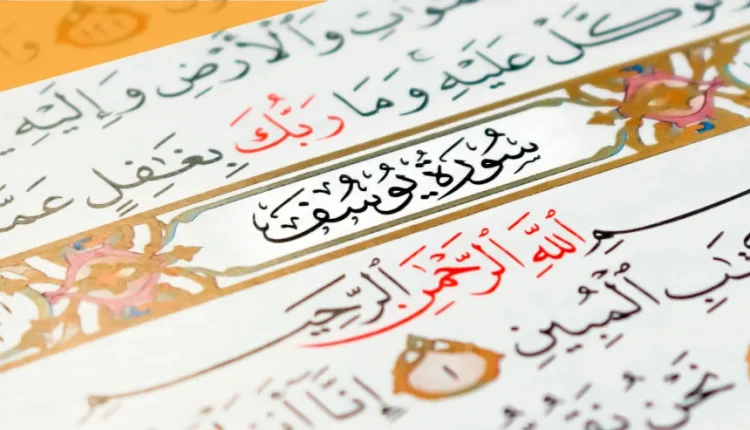 ٱلسَّمَٰوَٰتِ وَٱلْأَرْضِ وَإِلَيْهِ
وَتَوَكَّلْ عَلَيْهِ وَمَا رَبُّكَ بِغَٰفِلٍ عَمَّا
سُورَةُ يُوسُفَ
بِسْمِ ٱللَّهِ ٱلرَّحْمَٰنِ ٱلرَّحِيمِ
ٱلْمُبِينِ ١ إِنَّآ
نَحْنُ